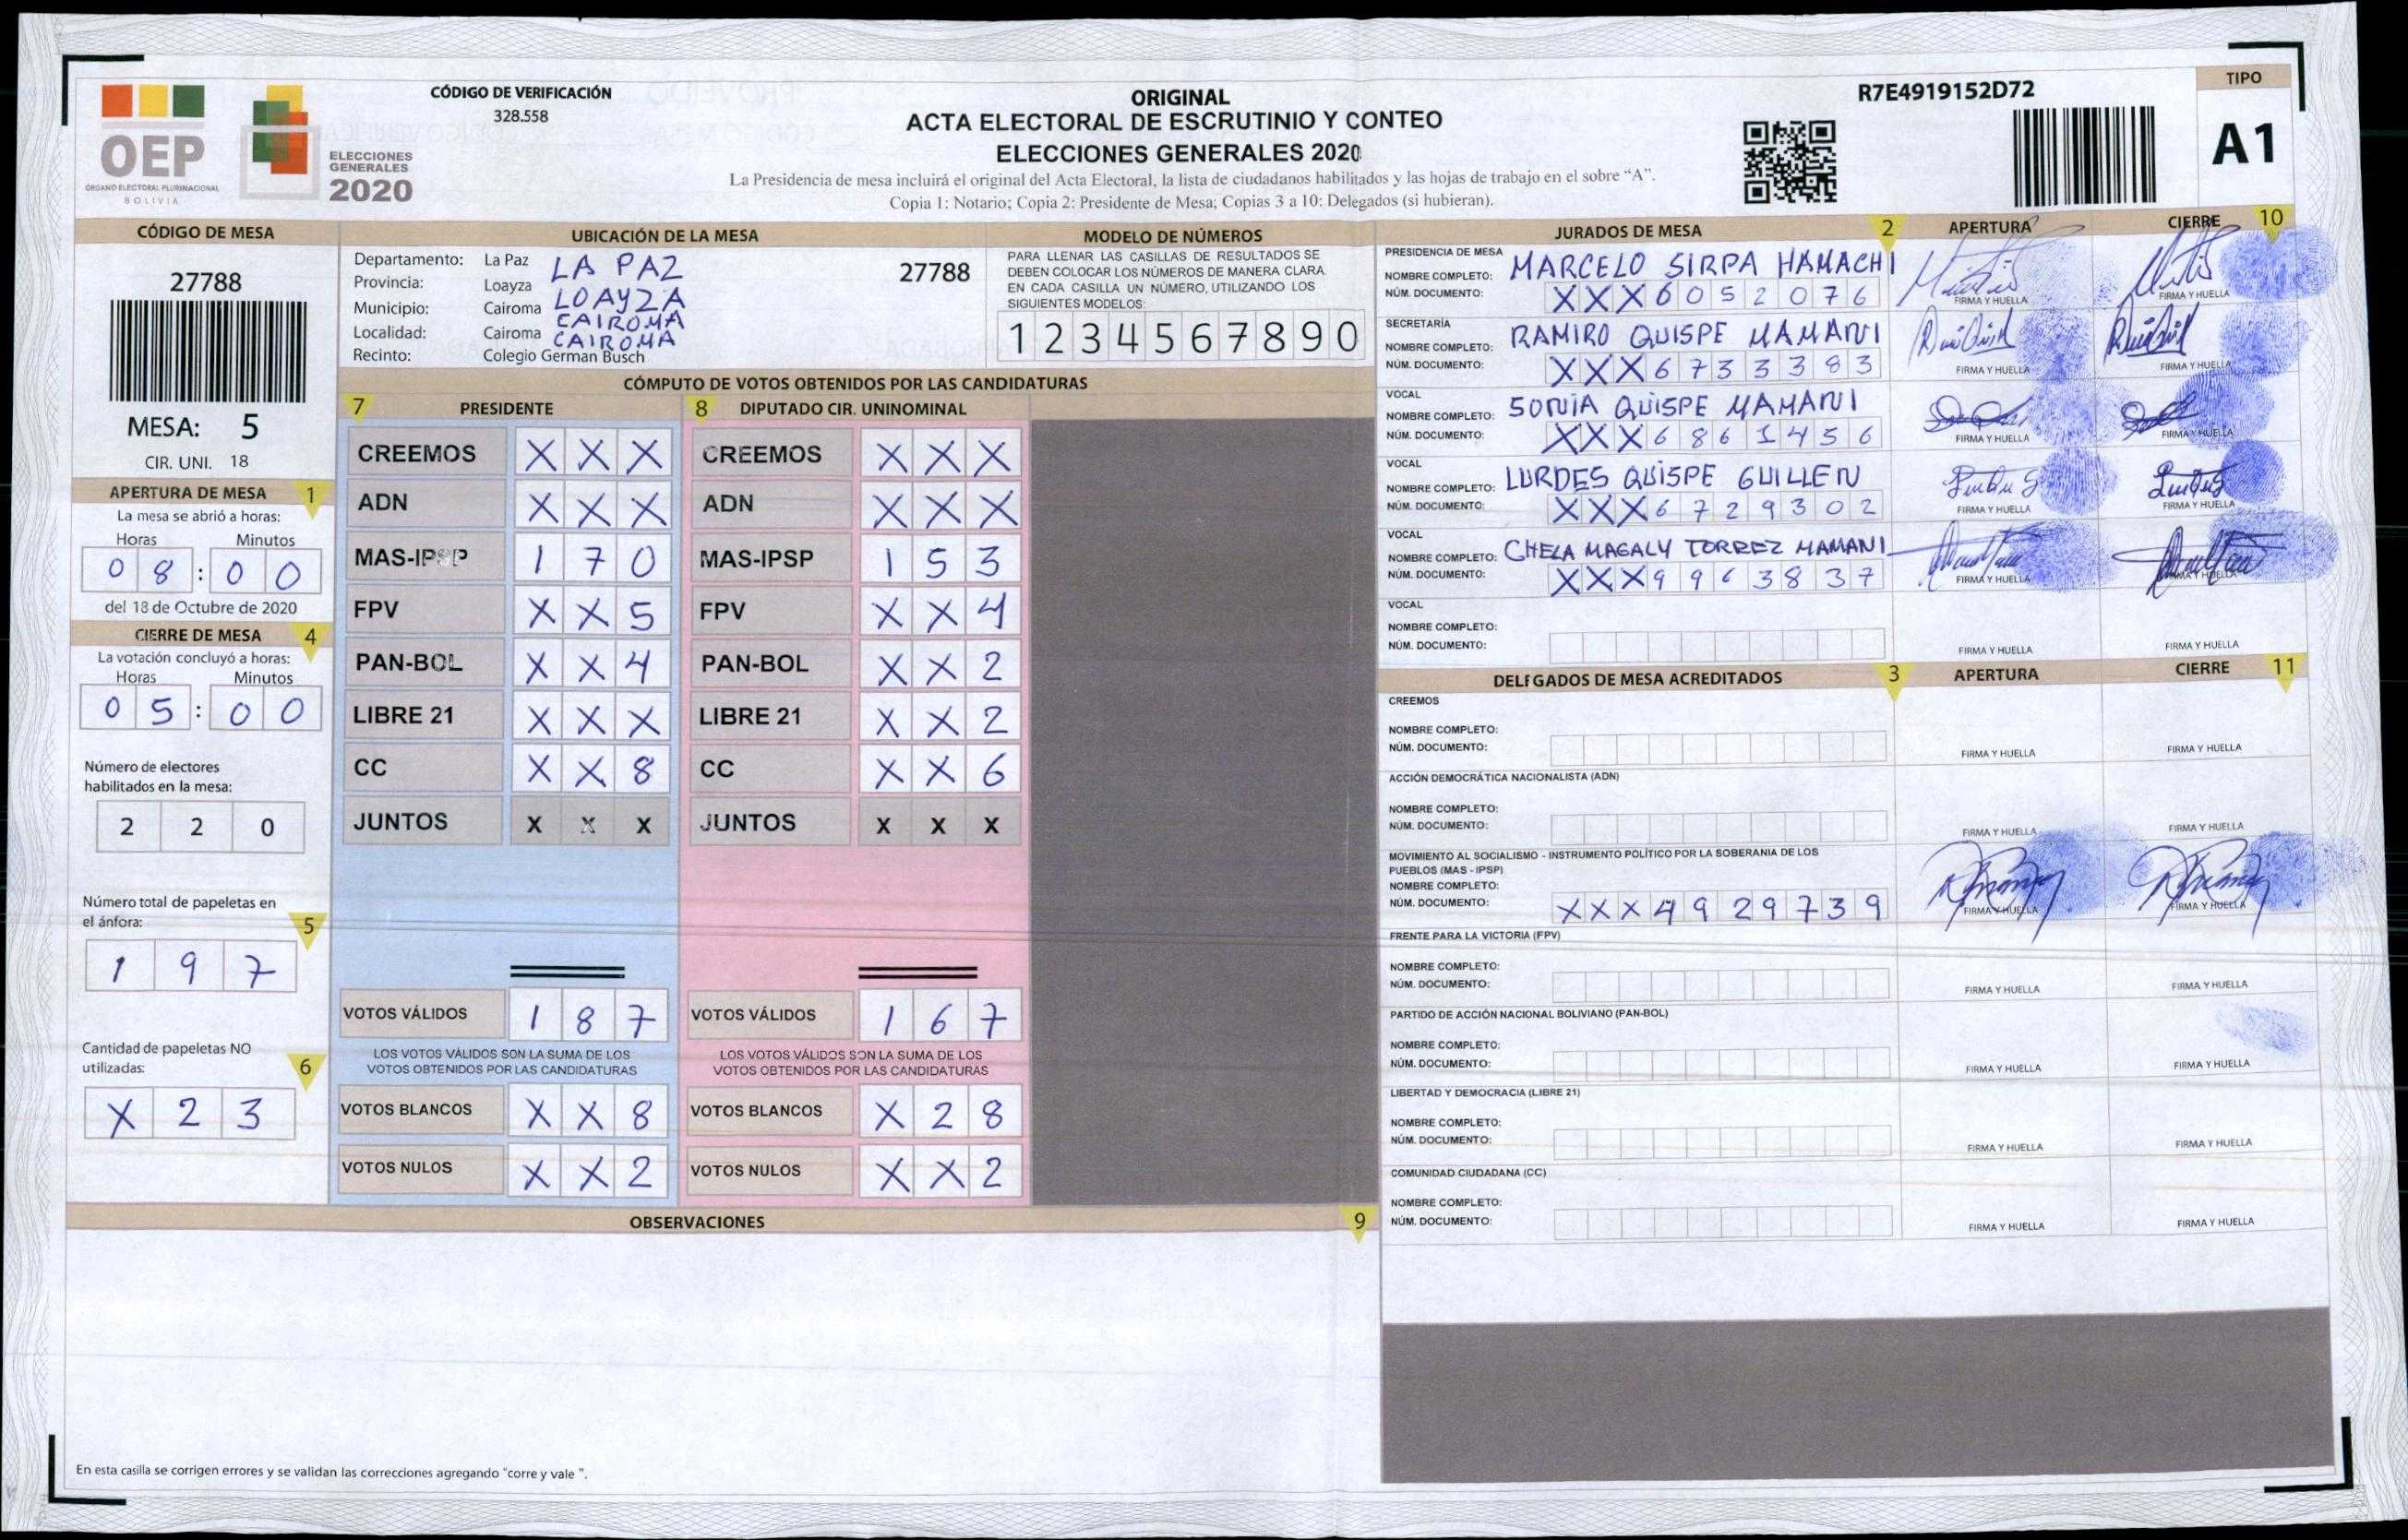 OEP
ÓRGANO ELECTORAL PLURINACIONAL
BOLIVIA
ELECCIONES
GENERALES
2020
CÓDIGO DE VERIFICACIÓN
328.558
ORIGINAL
ACTA ELECTORAL DE ESCRUTINIO Y CONTEO
ELECCIONES GENERALES 2020
La Presidencia de mesa incluirá el original del Acta Electoral, la lista de ciudadanos habilitados y las hojas de trabajo en el sobre “A”.
Copia 1: Notario; Copia 2: Presidente de Mesa; Copias 3 a 10: Delegados (si hubieran).
R7E4919152D72
TIPO
A1
CÓDIGO DE MESA
27788
MESA: 5
CIR. UNI. 18
APERTURA DE MESA 1
La mesa se abrió a horas:
Horas Minutos
0 8 : 0 0
del 18 de Octubre de 2020
CIERRE DE MESA 4
La votación concluyó a horas:
Horas Minutos
0 5 : 0 0
Número de electores
habilitados en la mesa:
2 2 0
Número total de papeletas en
el ánfora: 5
1 9 7
Cantidad de papeletas NO
utilizadas: 6
X 2 3
UBICACIÓN DE LA MESA
Departamento: La Paz LA PAZ 27788
Provincia: Loayza LOAYZA
Municipio: Cairoma CAIROMA
Localidad: Cairoma CAIROMA
Recinto: Colegio German Busch
MODELO DE NÚMEROS
PARA LLENAR LAS CASILLAS DE RESULTADOS SE
DEBEN COLOCAR LOS NÚMEROS DE MANERA CLARA.
EN CADA CASILLA UN NÚMERO, UTILIZANDO LOS
SIGUIENTES MODELOS:
1 2 3 4 5 6 7 8 9 0
CÓMPUTO DE VOTOS OBTENIDOS POR LAS CANDIDATURAS
7 PRESIDENTE 8 DIPUTADO CIR. UNINOMINAL
CREEMOS X X X CREEMOS X X X
ADN X X X ADN X X X
MAS-IPSP 1 7 0 MAS-IPSP 1 5 3
FPV X X 5 FPV X X 4
PAN-BOL X X 4 PAN-BOL X X 2
LIBRE 21 X X X LIBRE 21 X X 2
CC X X 8 CC X X 6
JUNTOS X X X JUNTOS X X X
VOTOS VÁLIDOS 1 8 7 VOTOS VÁLIDOS 1 6 7
LOS VOTOS VÁLIDOS SON LA SUMA DE LOS LOS VOTOS VÁLIDOS SON LA SUMA DE LOS
VOTOS OBTENIDOS POR LAS CANDIDATURAS VOTOS OBTENIDOS POR LAS CANDIDATURAS
VOTOS BLANCOS X X 8 VOTOS BLANCOS X 2 8
VOTOS NULOS X X 2 VOTOS NULOS X X 2
OBSERVACIONES 9
En esta casilla se corrigen errores y se validan las correcciones agregando "corre y vale ".
JURADOS DE MESA 2 APERTURA CIERRE 10
PRESIDENCIA DE MESA
NOMBRE COMPLETO: MARCELO SIRPA HAMACHI
NÚM. DOCUMENTO: X X X 6 0 5 2 0 7 6 FIRMA Y HUELLA FIRMA Y HUELLA
SECRETARÍA
NOMBRE COMPLETO: RAMIRO QUISPE MAMANI
NÚM. DOCUMENTO: X X X 6 7 3 3 3 8 3 FIRMA Y HUELLA FIRMA Y HUELLA
VOCAL
NOMBRE COMPLETO: SONIA QUISPE MAMANI
NÚM. DOCUMENTO: X X X 6 8 6 1 4 5 6 FIRMA Y HUELLA FIRMA Y HUELLA
VOCAL
NOMBRE COMPLETO: LURDES QUISPE GUILLEN
NÚM. DOCUMENTO: X X X 6 7 2 9 3 0 2 FIRMA Y HUELLA FIRMA Y HUELLA
VOCAL
NOMBRE COMPLETO: CHELA MAGALY TORREZ MAMANI
NÚM. DOCUMENTO: X X X 9 9 6 3 8 3 7 FIRMA Y HUELLA FIRMA Y HUELLA
VOCAL
NOMBRE COMPLETO:
NÚM. DOCUMENTO: FIRMA Y HUELLA FIRMA Y HUELLA
DELEGADOS DE MESA ACREDITADOS 3 APERTURA CIERRE 11
CREEMOS
NOMBRE COMPLETO:
NÚM. DOCUMENTO: FIRMA Y HUELLA FIRMA Y HUELLA
ACCIÓN DEMOCRÁTICA NACIONALISTA (ADN)
NOMBRE COMPLETO:
NÚM. DOCUMENTO: FIRMA Y HUELLA FIRMA Y HUELLA
MOVIMIENTO AL SOCIALISMO - INSTRUMENTO POLÍTICO POR LA SOBERANIA DE LOS
PUEBLOS (MAS - IPSP)
NOMBRE COMPLETO:
NÚM. DOCUMENTO: X X X 4 9 2 9 7 3 9 FIRMA Y HUELLA FIRMA Y HUELLA
FRENTE PARA LA VICTORIA (FPV)
NOMBRE COMPLETO:
NÚM. DOCUMENTO: FIRMA Y HUELLA FIRMA Y HUELLA
PARTIDO DE ACCIÓN NACIONAL BOLIVIANO (PAN-BOL)
NOMBRE COMPLETO:
NÚM. DOCUMENTO: FIRMA Y HUELLA FIRMA Y HUELLA
LIBERTAD Y DEMOCRACIA (LIBRE 21)
NOMBRE COMPLETO:
NÚM. DOCUMENTO: FIRMA Y HUELLA FIRMA Y HUELLA
COMUNIDAD CIUDADANA (CC)
NOMBRE COMPLETO:
NÚM. DOCUMENTO: FIRMA Y HUELLA FIRMA Y HUELLA